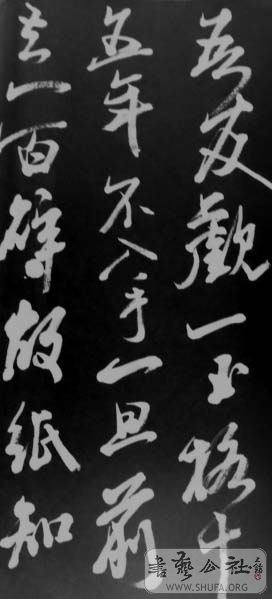 吾友觀一玉格十
五年不入手一旦前
去一百碎故紙知
書藝公社
WWW.SHUFA.ORG